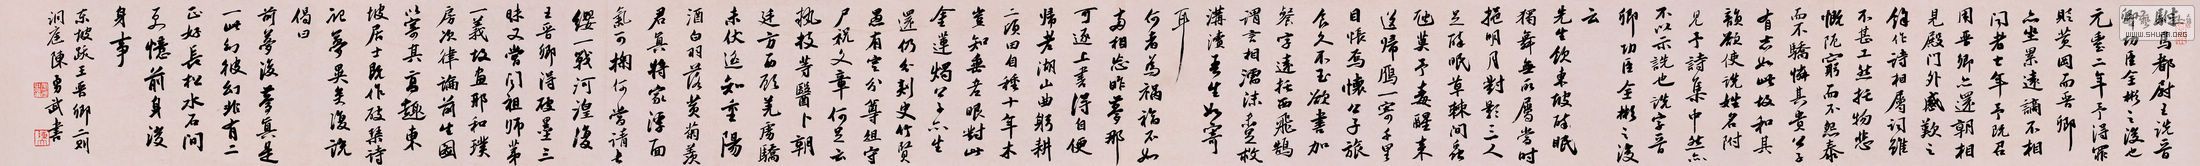 駙馬都尉王詵晉
卿功臣全彬之後也
元豐二年予得罪
貶黃岡而晉卿
亦坐累遠謫不相
聞者七年予既召
用晉卿亦還朝相
見殿門外感歎之
餘作詩相屬詞雖
不甚工然托物悲
慨阨窮而不怨泰
而不驕憐其貴公子
有志如此故和其
韻欲使詵姓名附
見予詩集中然亦
不以示詵也詵字晉
卿功臣全彬之後
云
先生飲東坡醉眠
獨舞無所屬當時
挹明月對影三人
足醉眠草棘間蟲
虺莫予毒醒來
送歸鴈一寄千里
目悵焉懷公子旅
食久不玉欲書加
餐字遠托西飛鵠
謂言相濡沫救
溝瀆吾生如寄
耳
何者為禍福不如
兩相忘昨夢那
可逐上書得自便
歸老湖山曲躬耕
二頃田自種十年木
豈知垂老眼對此
金蓮燭公子亦生
還仍分刺史竹賢
愚有定分尊俎守
尸祝文章何足云
執技等醫卜朝
廷方西顧羌虜驕
未伏遙知重陽
酒白羽落黃菊羨
君真將家浮面
氣可掬何當請長
纓一戰河湟復
王晉卿得破墨三
昧又嘗聞祖師第
一義故畫邢和璞
房次律論前生圖
以寄其高趣東
坡居士既作破琴詩
記夢異矣復說
偈曰
前夢後夢真是
一此幻彼幻非有二
正好長松水石間
更憶前身後
身事
東坡跋王晉卿二則
洞庭陳勇武書